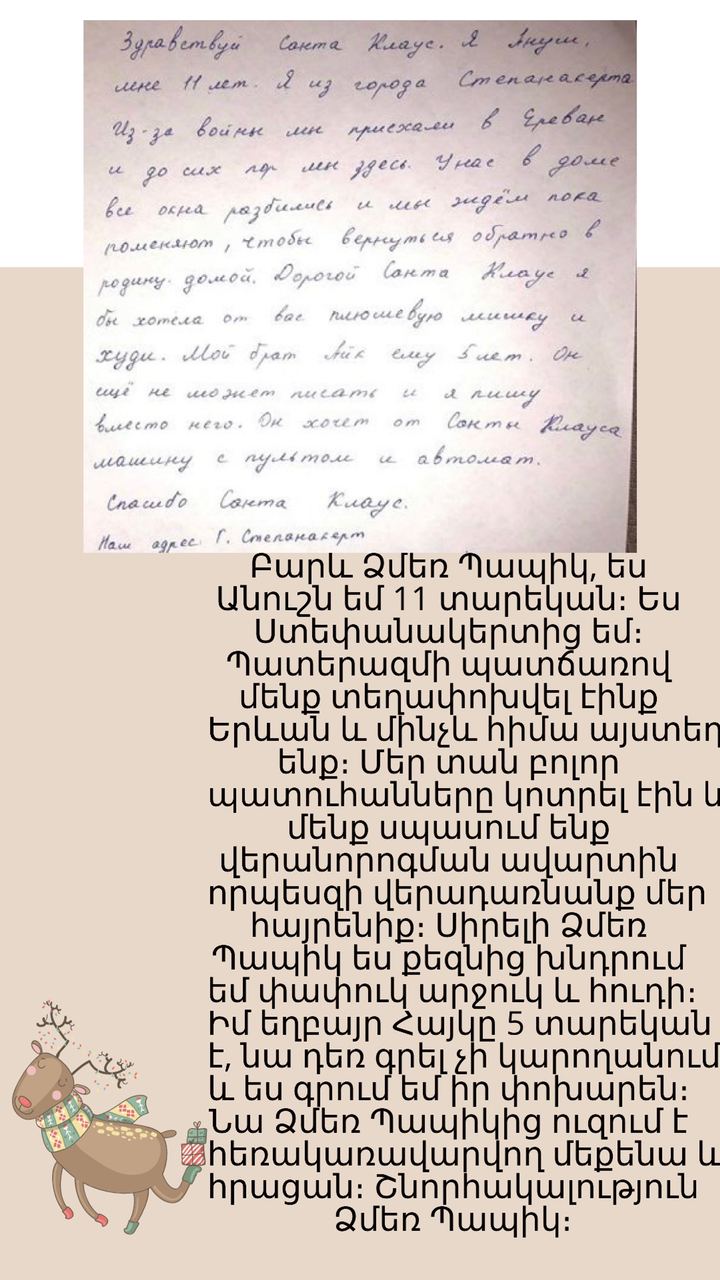 Здравствуй Санта Клаус. Я Ануш,
мне 11 лет. Я из города Степанакерта
Из-за войны мы приехали в Ереван
и до сих пор мы здесь. У нас в доме
все окна разбились и мы ждём пока
поменяют, чтобы вернуться обратно в
родину домой. Дорогой Санта Клаус я
бы хотела от вас плюшевую мишку и
худи. Мой брат Айк ему 5 лет. Он
ещё не может писать и я пишу
вместо него. Он хочет от Санты Клауса
машину с пультом и автомат.
Спасибо Санта Клаус.
Наш адрес: Г. Степанакерт
Բարև Ձմեռ Պապիկ, ես
Անուշն եմ 11 տարեկան։ Ես
Ստեփանակերտից եմ։
Պատերազմի պատճառով
մենք տեղափոխվել էինք
Երևան և մինչև հիմա այստեղ
ենք։ Մեր տան բոլոր
պատուհանները կոտրել էին և
մենք սպասում ենք
վերանորոգման ավարտին
որպեսզի վերադառնանք մեր
հայրենիք։ Սիրելի Ձմեռ
Պապիկ ես քեզնից խնդրում
եմ փափուկ արջուկ և հուդի։
Իմ եղբայր Հայկը 5 տարեկան
է, նա դեռ գրել չի կարողանում
և ես գրում եմ իր փոխարեն։
Նա Ձմեռ Պապիկից ուզում է
հեռակառավարվող մեքենա և
հրացան։ Շնորհակալություն
Ձմեռ Պապիկ։